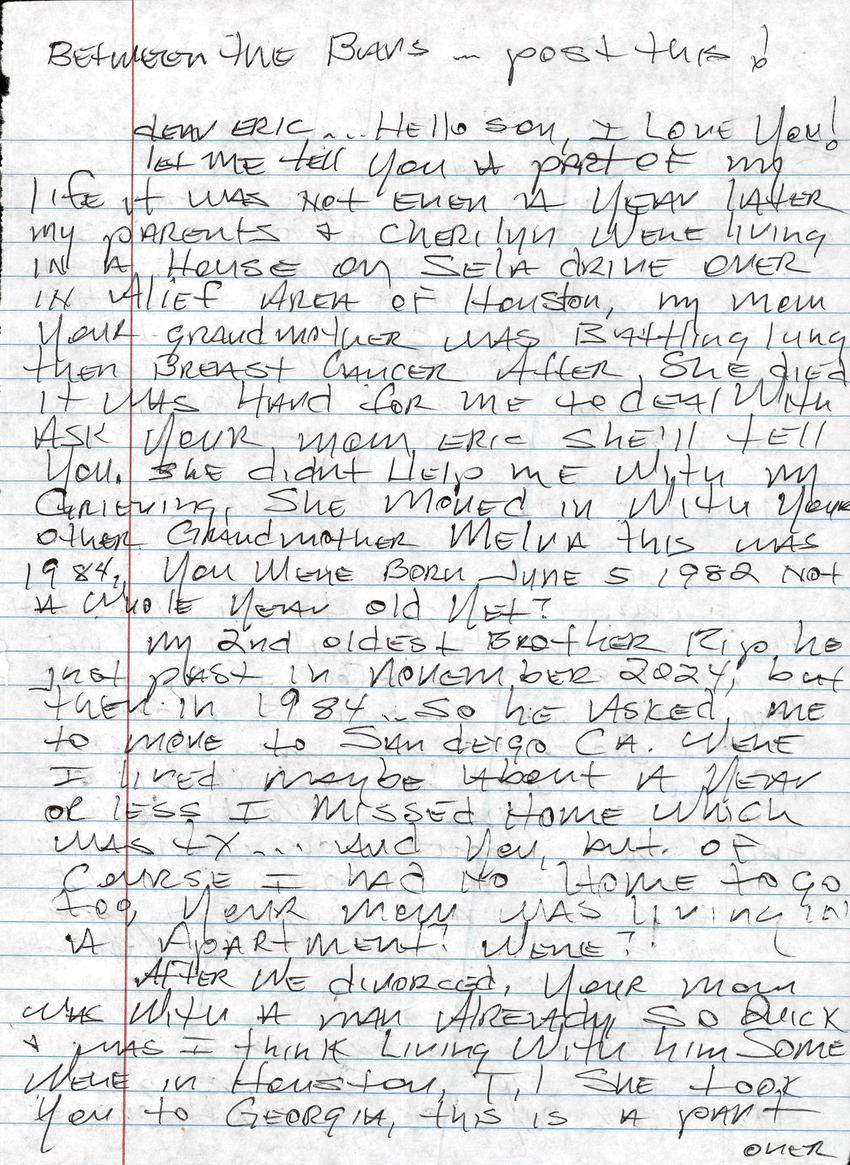 BETWEEN tHE BARS ... post this!
dEAR ERIC .... HEllo son, I LOVE You!
let ME tell You A pARt OF my
lifE it WAS Not EVEN A YEAR lAtER
my pARENtS & CHERilyn WERE living
IN A HOUSE on SElA dRIVE OVER
IN Alief AREA OF Houston, my mom
YOUR gRANdmotHER WAS BAttling lung
tHEN BREASt CANCER AftER SHE diEd
It WAS HARd foR mE to dEAl WitH
ASK YOUR mom, ERIC SHE'll tEll
You. SHE didnt HElp mE WitH my
GRiEVing, SHE MOVEd in WitH YOUR
otHER GRAndmotHER MElVA this WAS
1984, You WERE BORN JUNE 5 1982 Not
A WHolE YEAR old YEt?
my 2nd oldESt BRotHER Rip, he
just pASt in NOVEmbER 2024, but
tHEN in 1984 .. So he ASKEd me
to moVE to SAn dEigo CA. WERE
I liVEd mAybE About A YEAR
OR lESS I MISSEd HomE WHicH
WAS tX .... And You, but. OF
COURSE I HAd No HomE to go
too, YOUR mom WAS liVing IN
A ApARtmEnt? WERE?
AftER WE diVORCEd, YOUR mom
WAS WitH A mAn AlREAdy, SO QUICK
& WAS I tHinK LiVing WitH him SomE
WERE in Houston, T,l SHE took
You to GEORGIA, tHis is A pARt
OVER